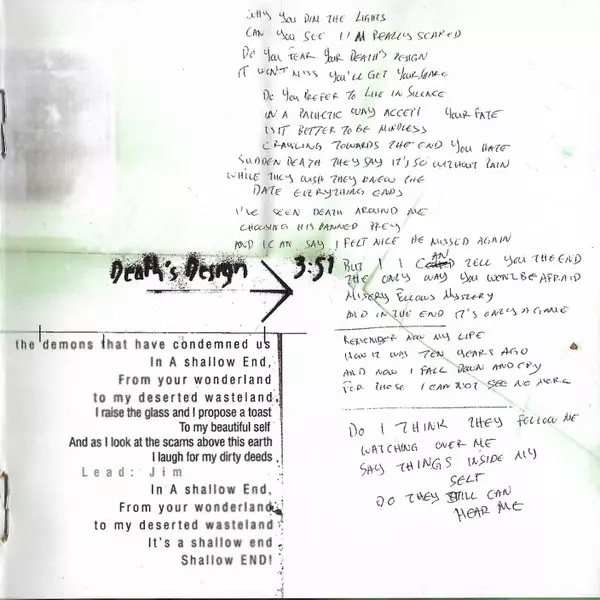 WHY YOU DIM THE LIGHTS
CAN YOU SEE I'M REALLY SCARED
DO YOU FEAR YOUR DEATH'S DESIGN
IT WON'T MISS YOU'LL GET YOUR SHARE
DO YOU PREFER TO LIVE IN SILENCE
IN A PATHETIC WAY ACCEPT YOUR FATE
IS IT BETTER TO BE MINDLESS
CRAWLING TOWARDS THE END YOU HATE
SUDDEN DEATH THEY SAY IT'S SO WITHOUT PAIN
WHILE THEY WISH THEY KNEW THE
DATE EVERYTHING ENDS
I'VE SEEN DEATH AROUND ME
CHOOSING HIS DAMNED PREY
AND I CAN SAY I FELT NICE HE MISSED AGAIN
Death's Design 3:51
BUT I I CAN TELL YOU THE END
THE ONLY WAY YOU WON'T BE AFRAID
MISERY FOLLOWS MYSTERY
AND IN THE END IT'S ONLY A GAME
REMEMBER NOW MY LIFE
HOW IT WAS TEN YEARS AGO
AND NOW I FALL DOWN AND CRY
FOR THOSE I CAN NOT SEE NO MORE
DO I THINK THEY FOLLOW ME
WATCHING OVER ME
SAY THINGS INSIDE MY
SELF
DO THEY STILL CAN
HEAR ME
the demons that have condemned us
In A shallow End,
From your wonderland
to my deserted wasteland,
I raise the glass and I propose a toast
To my beautiful self
And as I look at the scams above this earth
I laugh for my dirty deeds,
Lead: Jim
In A shallow End,
From your wonderland,
to my deserted wasteland
It's a shallow end,
Shallow END!